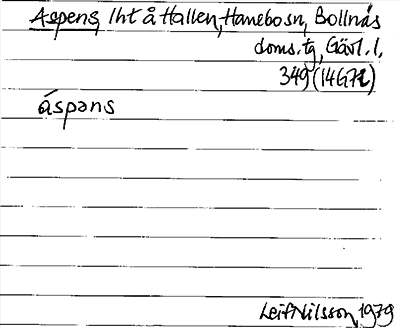 Aspens, lht å Hallen, Hanebo sn, Bollnäs
doms.tg, Gävl. l,
349 (14G7i)
áspəns
Leif Nilsson, 1979